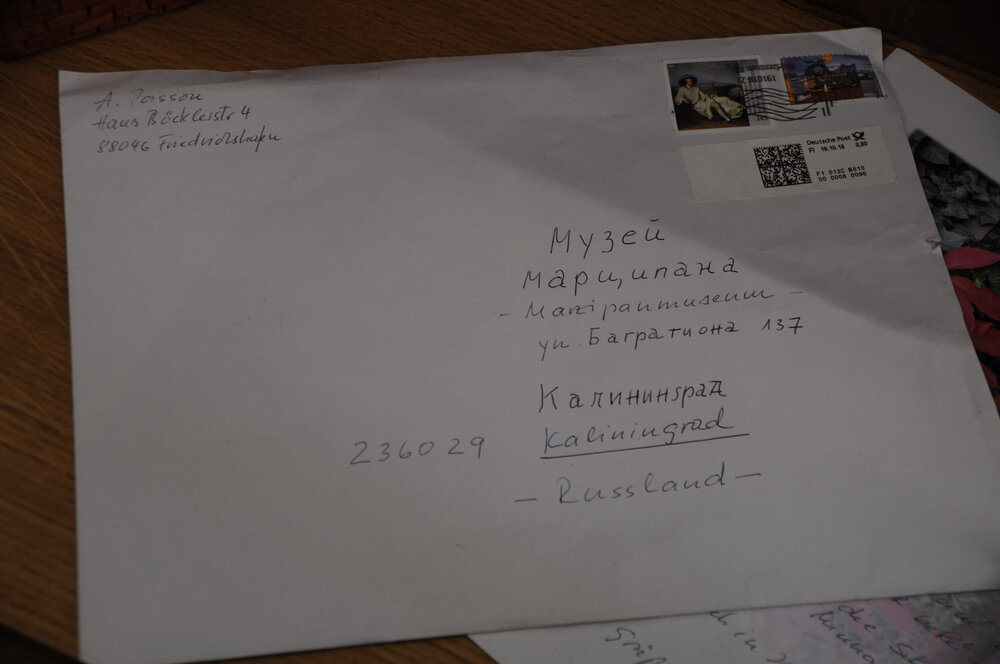 A. Poisson
Hans Böcklerstr 4
88046 Friedrichshafen
Deutsche Post
FI 19.10.18 0,80
F1 013C B810
00 0008 0096
Музей
марципана
- Marzipanmuseum -
ул. Багратиона 137
Калининград
236029 Kaliningrad
- Russland -
die